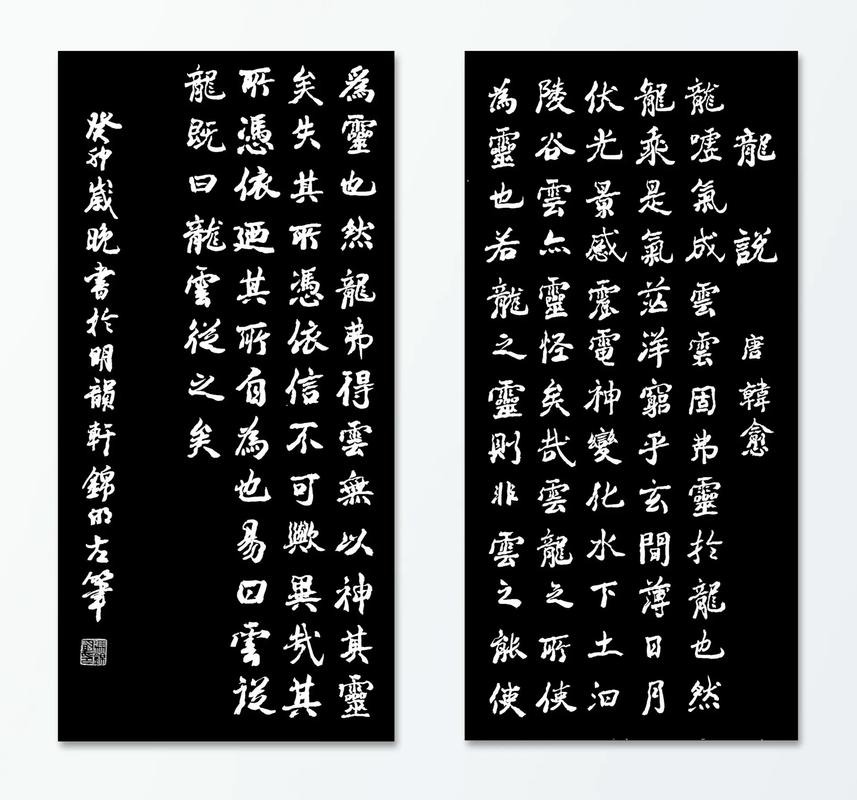 龍說 唐 韓愈
龍噓氣成雲雲固弗靈於龍也然
龍乘是氣茫洋窮乎玄間薄日月
伏光景感震電神變化水下土汩
陵谷雲亦靈怪矣哉雲龍之所使
為靈也若龍之靈則非雲之能使
爲靈也然龍弗得雲無以神其靈
矣失其所憑依信不可歟異哉其
所憑依廼其所自為也易曰雲從
龍既曰龍雲從之矣
癸卯歲晚書於明韻軒錦明左筆